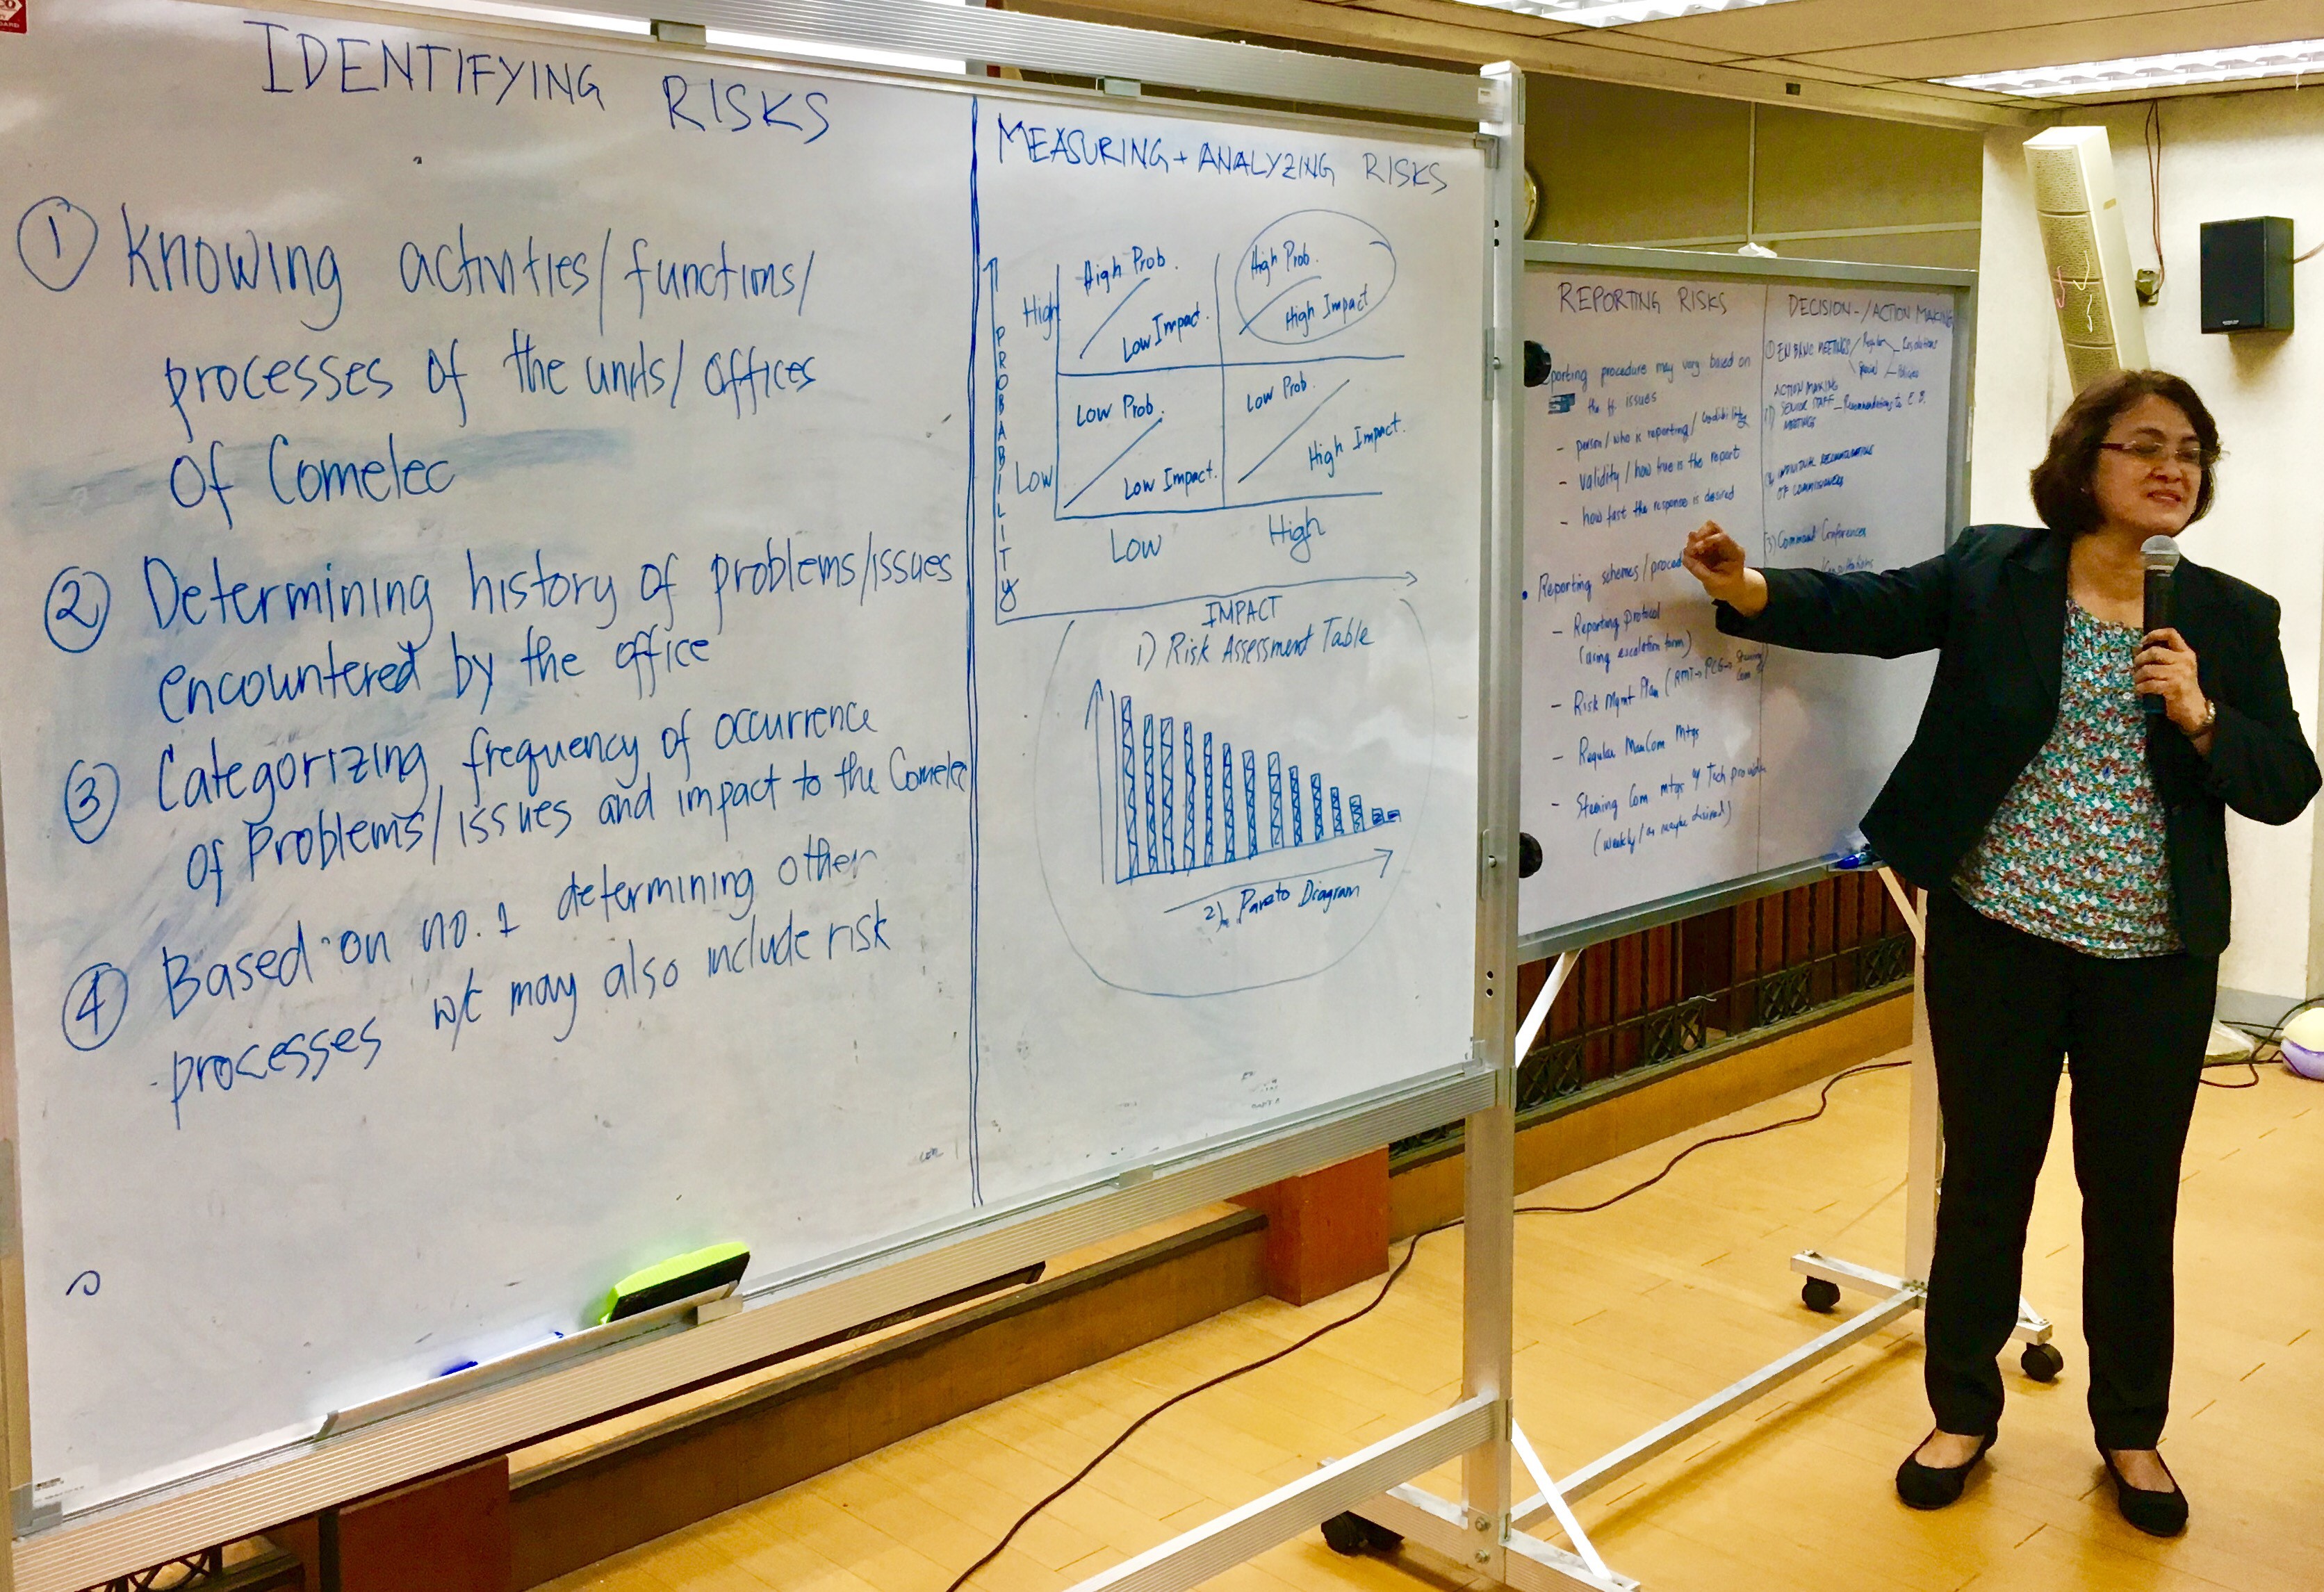 IDENTIFYING RISKS
① Knowing activities/functions/
processes of the units/offices
of Comelec
② Determining history of problems/issues
encountered by the office
③ Categorizing frequency of occurrence
of Problems/issues and impact to the Comelec
④ Based on no. 1 determining other
processes w/c may also include risk
MEASURING + ANALYZING RISKS
PROBABILITY
High
High Prob.
Low Impact.
High Prob.
High Impact
Low
Low Prob.
Low Impact.
Low Prob.
High Impact.
Low High
IMPACT
1) Risk Assessment Table
2) Pareto Diagram
REPORTING RISKS
porting procedure may vary based on
the issues
- person/who is reporting/credibility
- Validity/how true is the report
- how fast the response is desired
• Reporting schemes/proced
- Reporting Protocol
(using escalation form)
- Risk Mgmt Plan (RMT→PCG→ Steering Com
- Regular ManCom Mtgs
- Steering Com mtgs Tech provider
(weekly/as maybe desired)
DECISION-/ACTION MAKING
① EN BANC MEETINGS Regular Resolutions
Special Policies
ACTION MAKING
(1) SENIOR STAFF - Recommendations to E.B.
MEETINGS
OF COMMISSIONERS
(3) Command Conferences